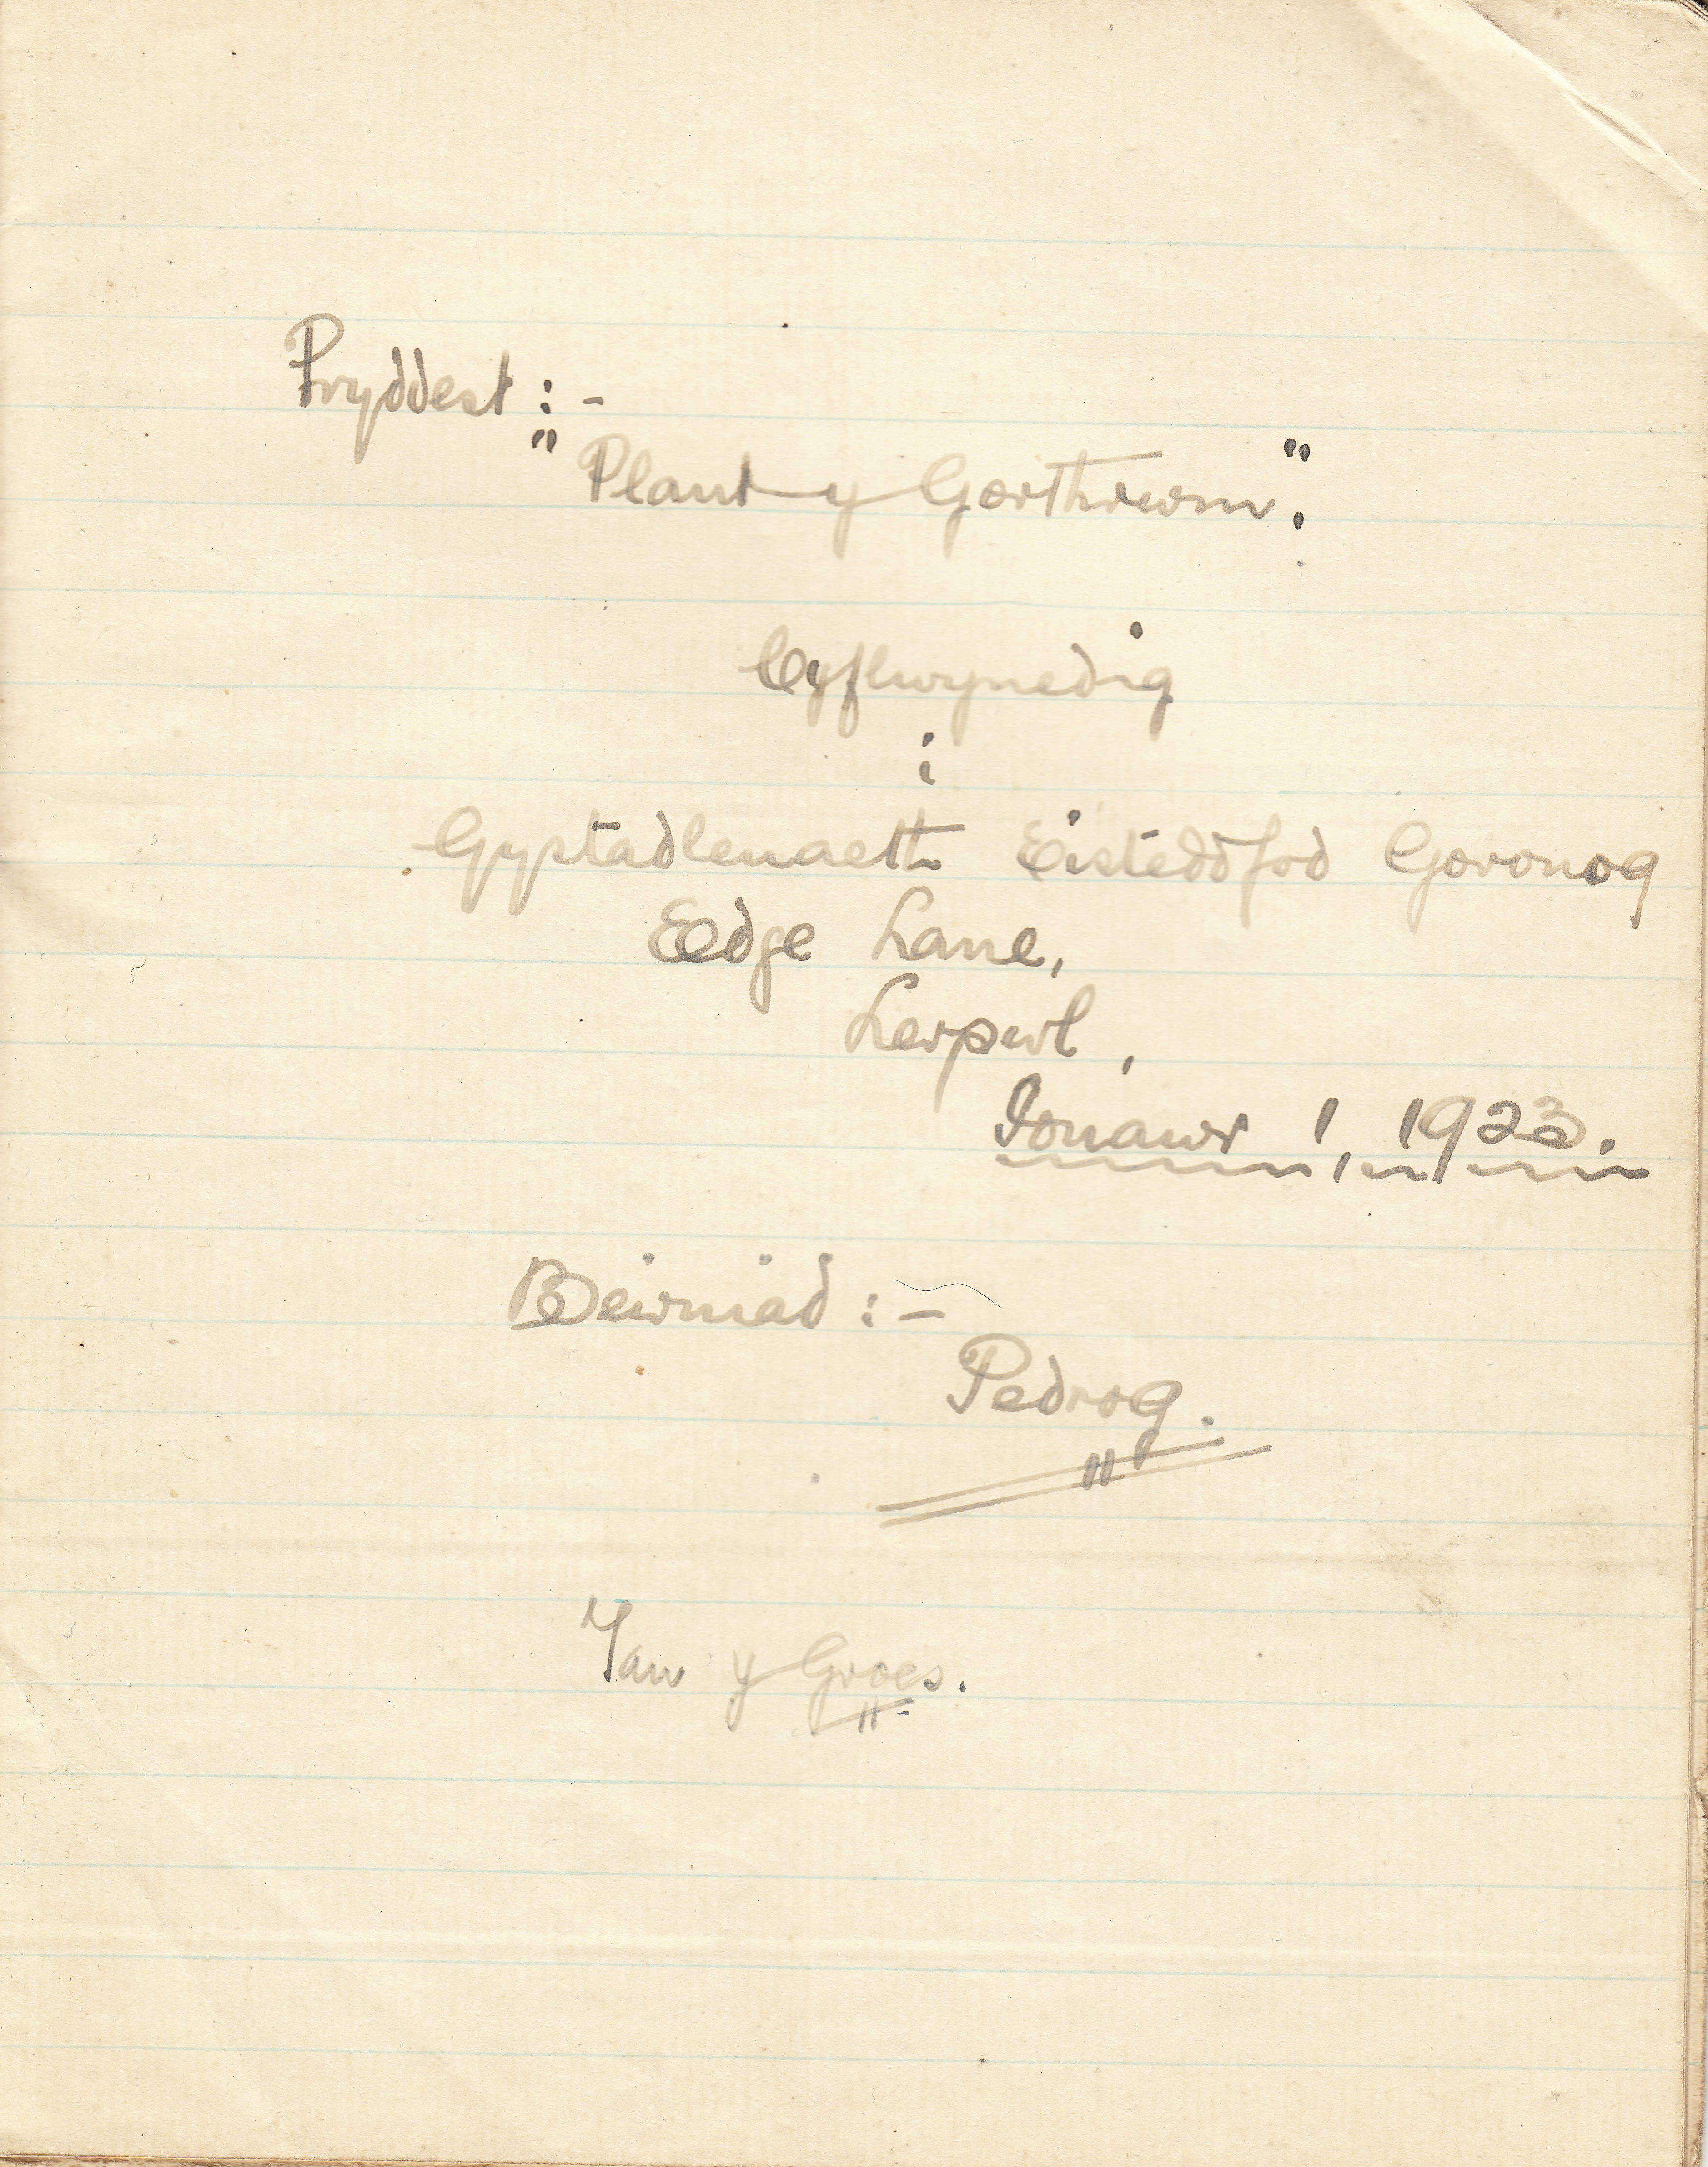 Pryddest :-
"Plant y Gorthrwm".
Cyflwynedig
i
Gystadlenaeth Eisteddfod Goronog
Edge Lane,
Lerpwl,
Ionawr 1, 1923.
Beirniad :-
Pedrog.
y Groes.